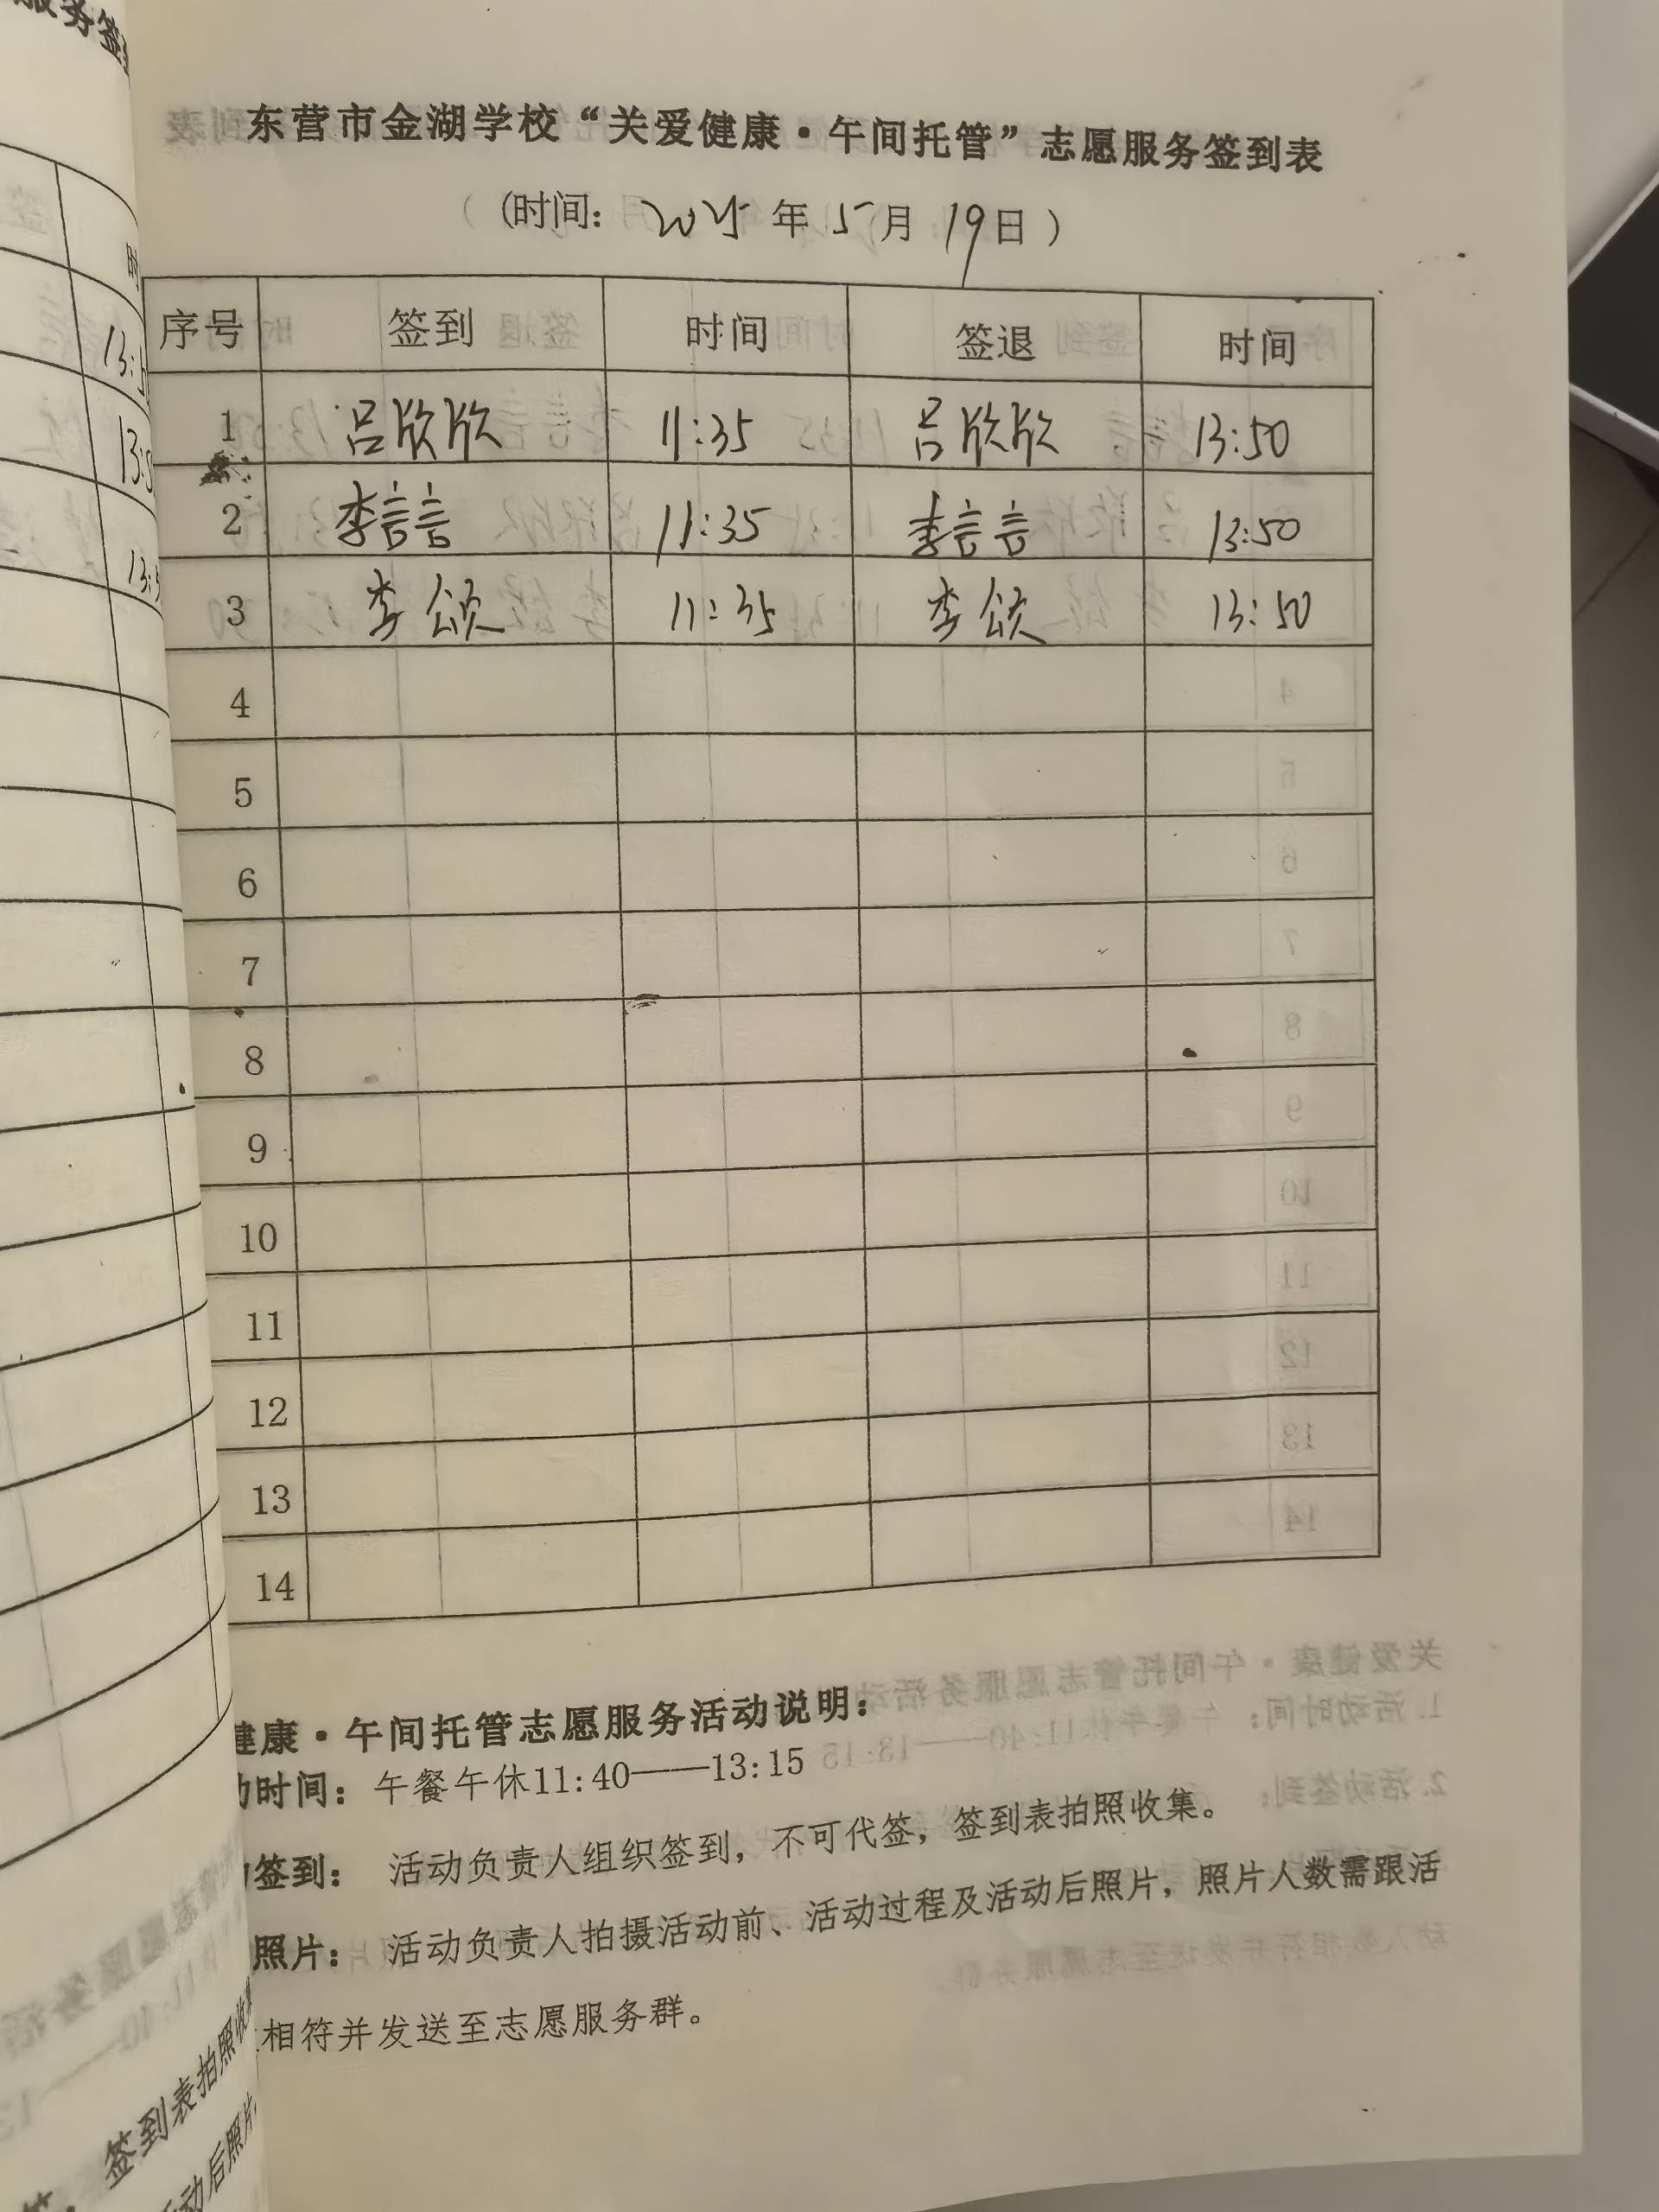 东营市金湖学校“关爱健康·午间托管”志愿服务签到表
(时间: 2025 年 5 月 19 日 )
序号 签到 时间 签退 时间
1 吕欣欣 11:35 吕欣欣 13:50
2 李言言 11:35 李言言 13:50
3 李颂 11:35 李颂 13:50
4
5
6
7
8
9
10
11
12
13
14
健康·午间托管志愿服务活动说明:
时间: 午餐午休11:40——13:15
签到: 活动负责人组织签到，不可代签，签到表拍照收集。
照片: 活动负责人拍摄活动前、活动过程及活动后照片，照片人数需跟活
相符并发送至志愿服务群。
签到表拍照收
动后照片